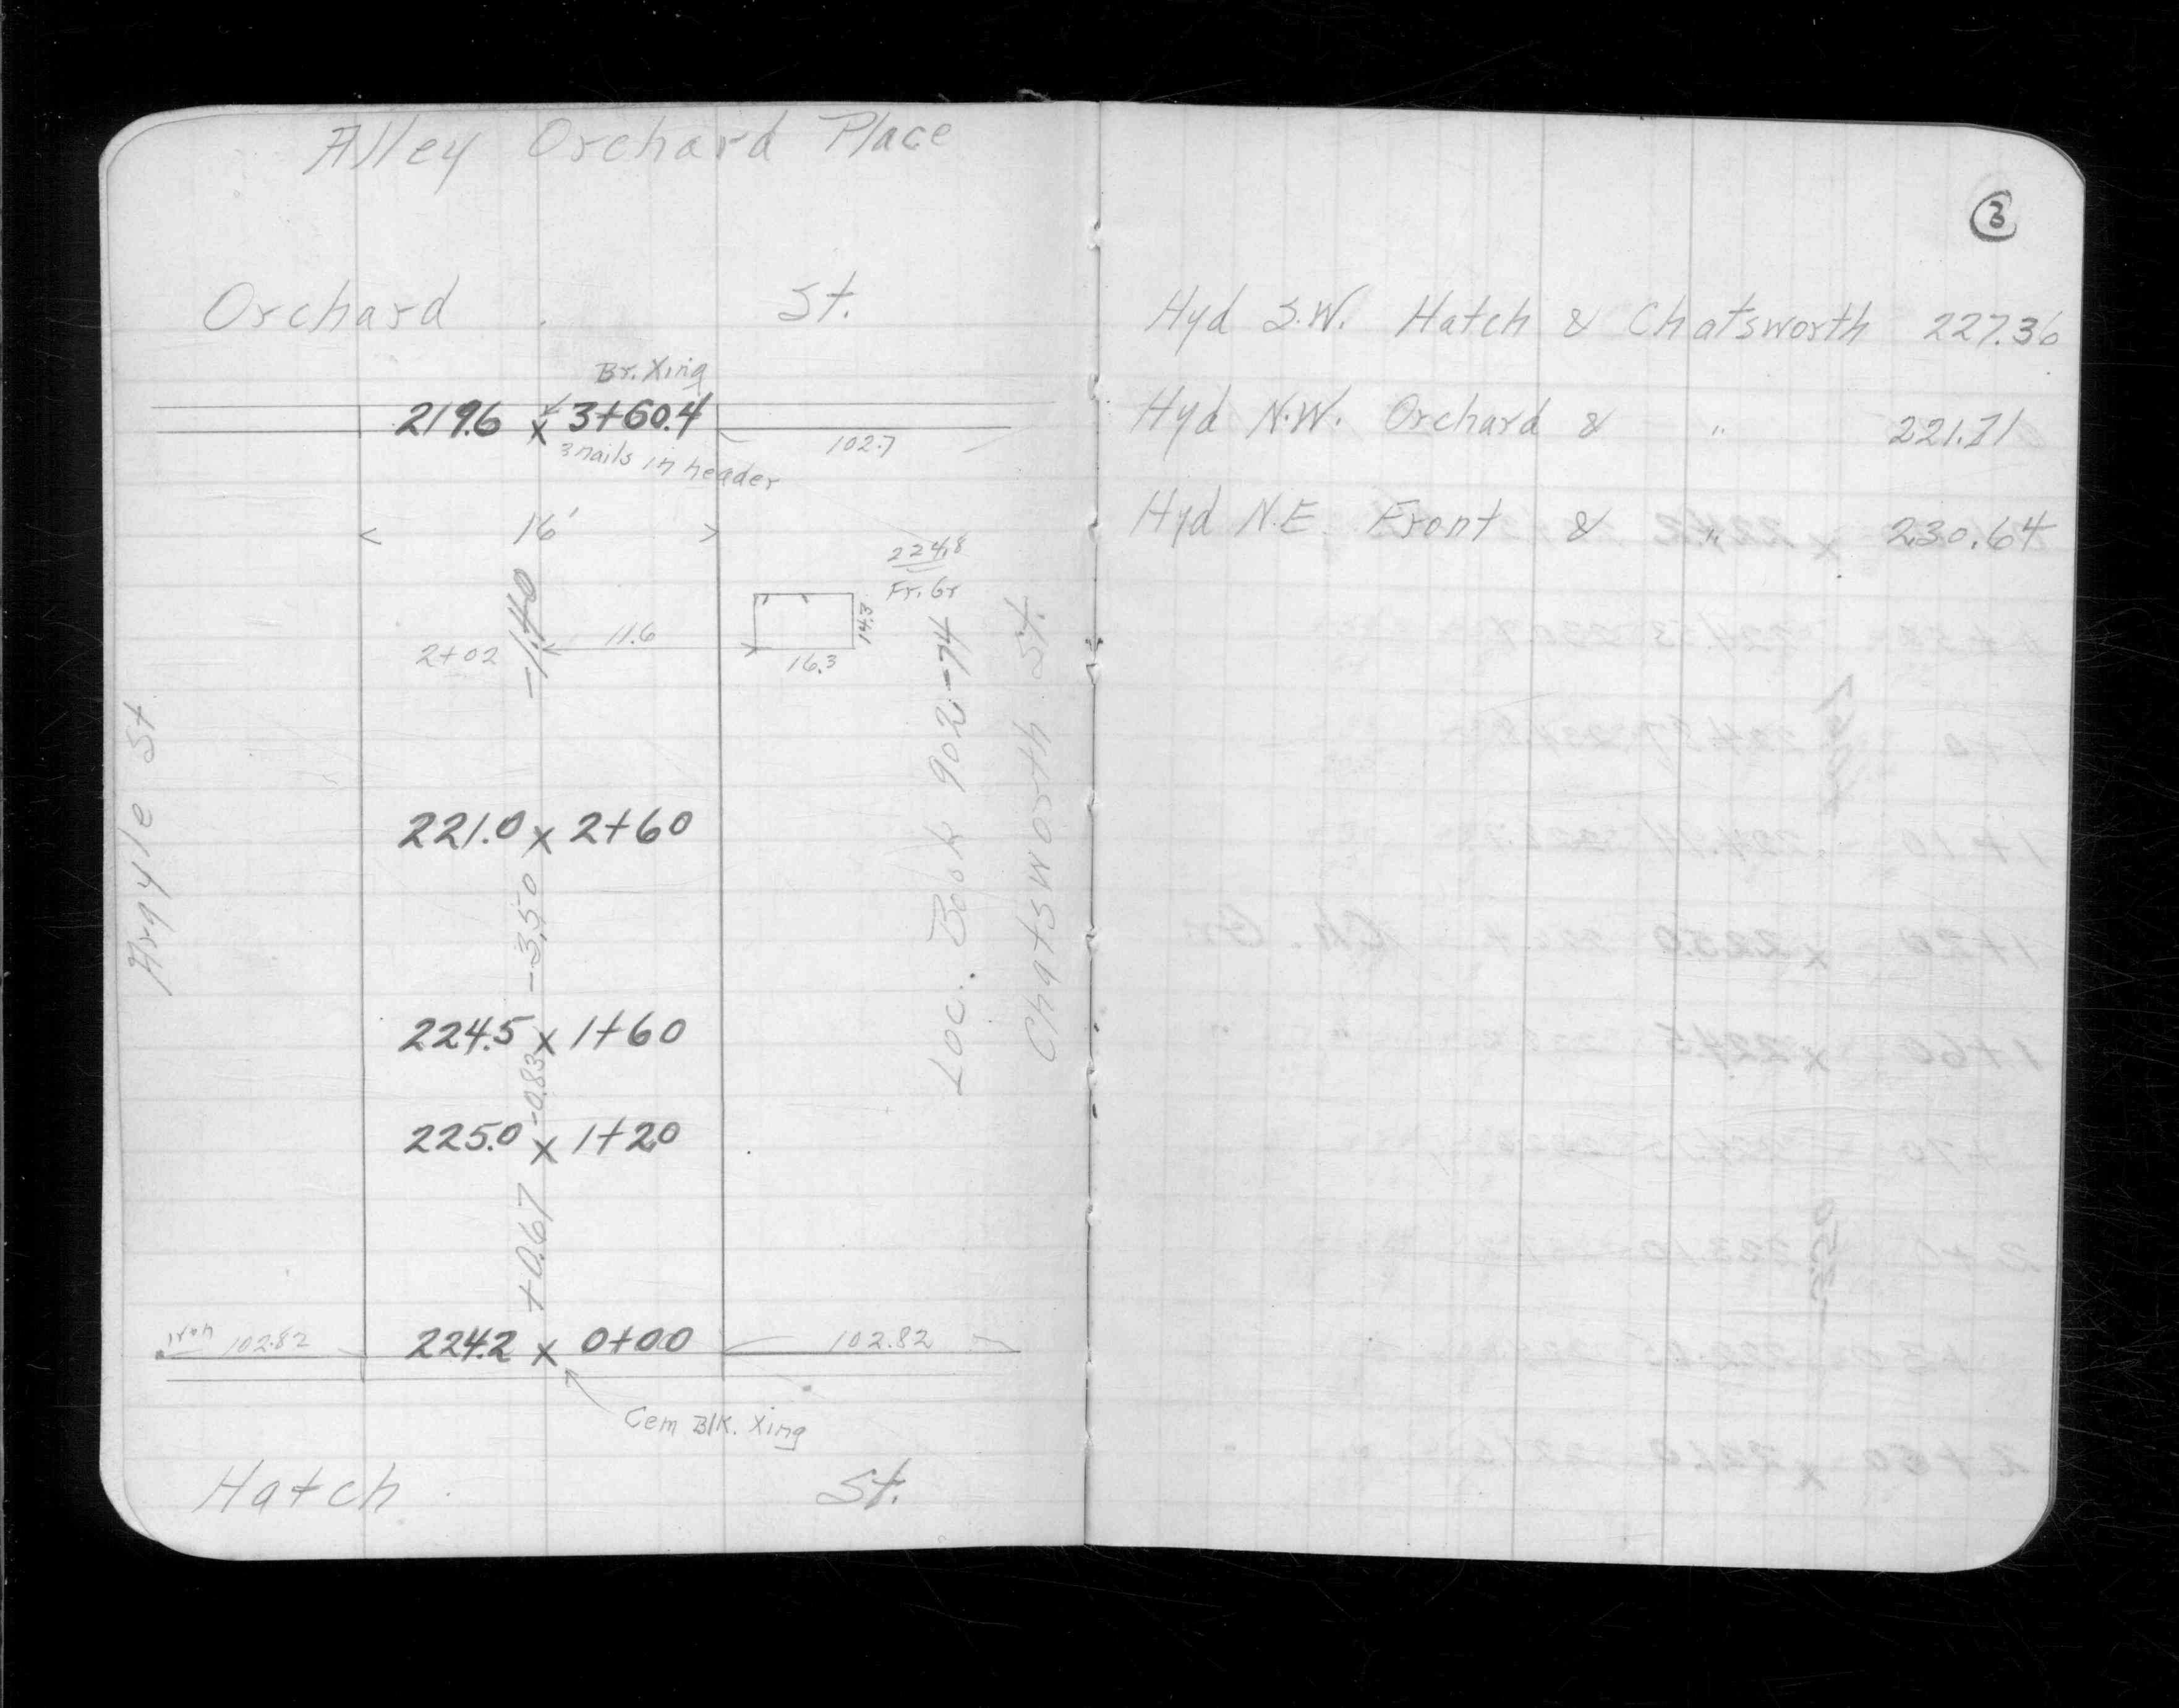 Alley Orchard Place
Orchard St.
Br. Xing
219.6 x 3+60.4
3 nails in header
102.7
16'
224.8
Fr. Gr
-1.40
2+02
11.6
14.3
16.3
Argyle St.
Loc. Book 902-74
Chatsworth St.
221.0 x 2+60
-3.50
224.5 x 1+60
-0.83
225.0 x 1+20
+0.67
iron 102.82
224.2 x 0+00
102.82
Cem Blk. Xing
Hatch St.
3
Hyd S.W. Hatch & Chatsworth 227.36
Hyd N.W. Orchard & " 221.71
Hyd N.E. Front & " 230.64